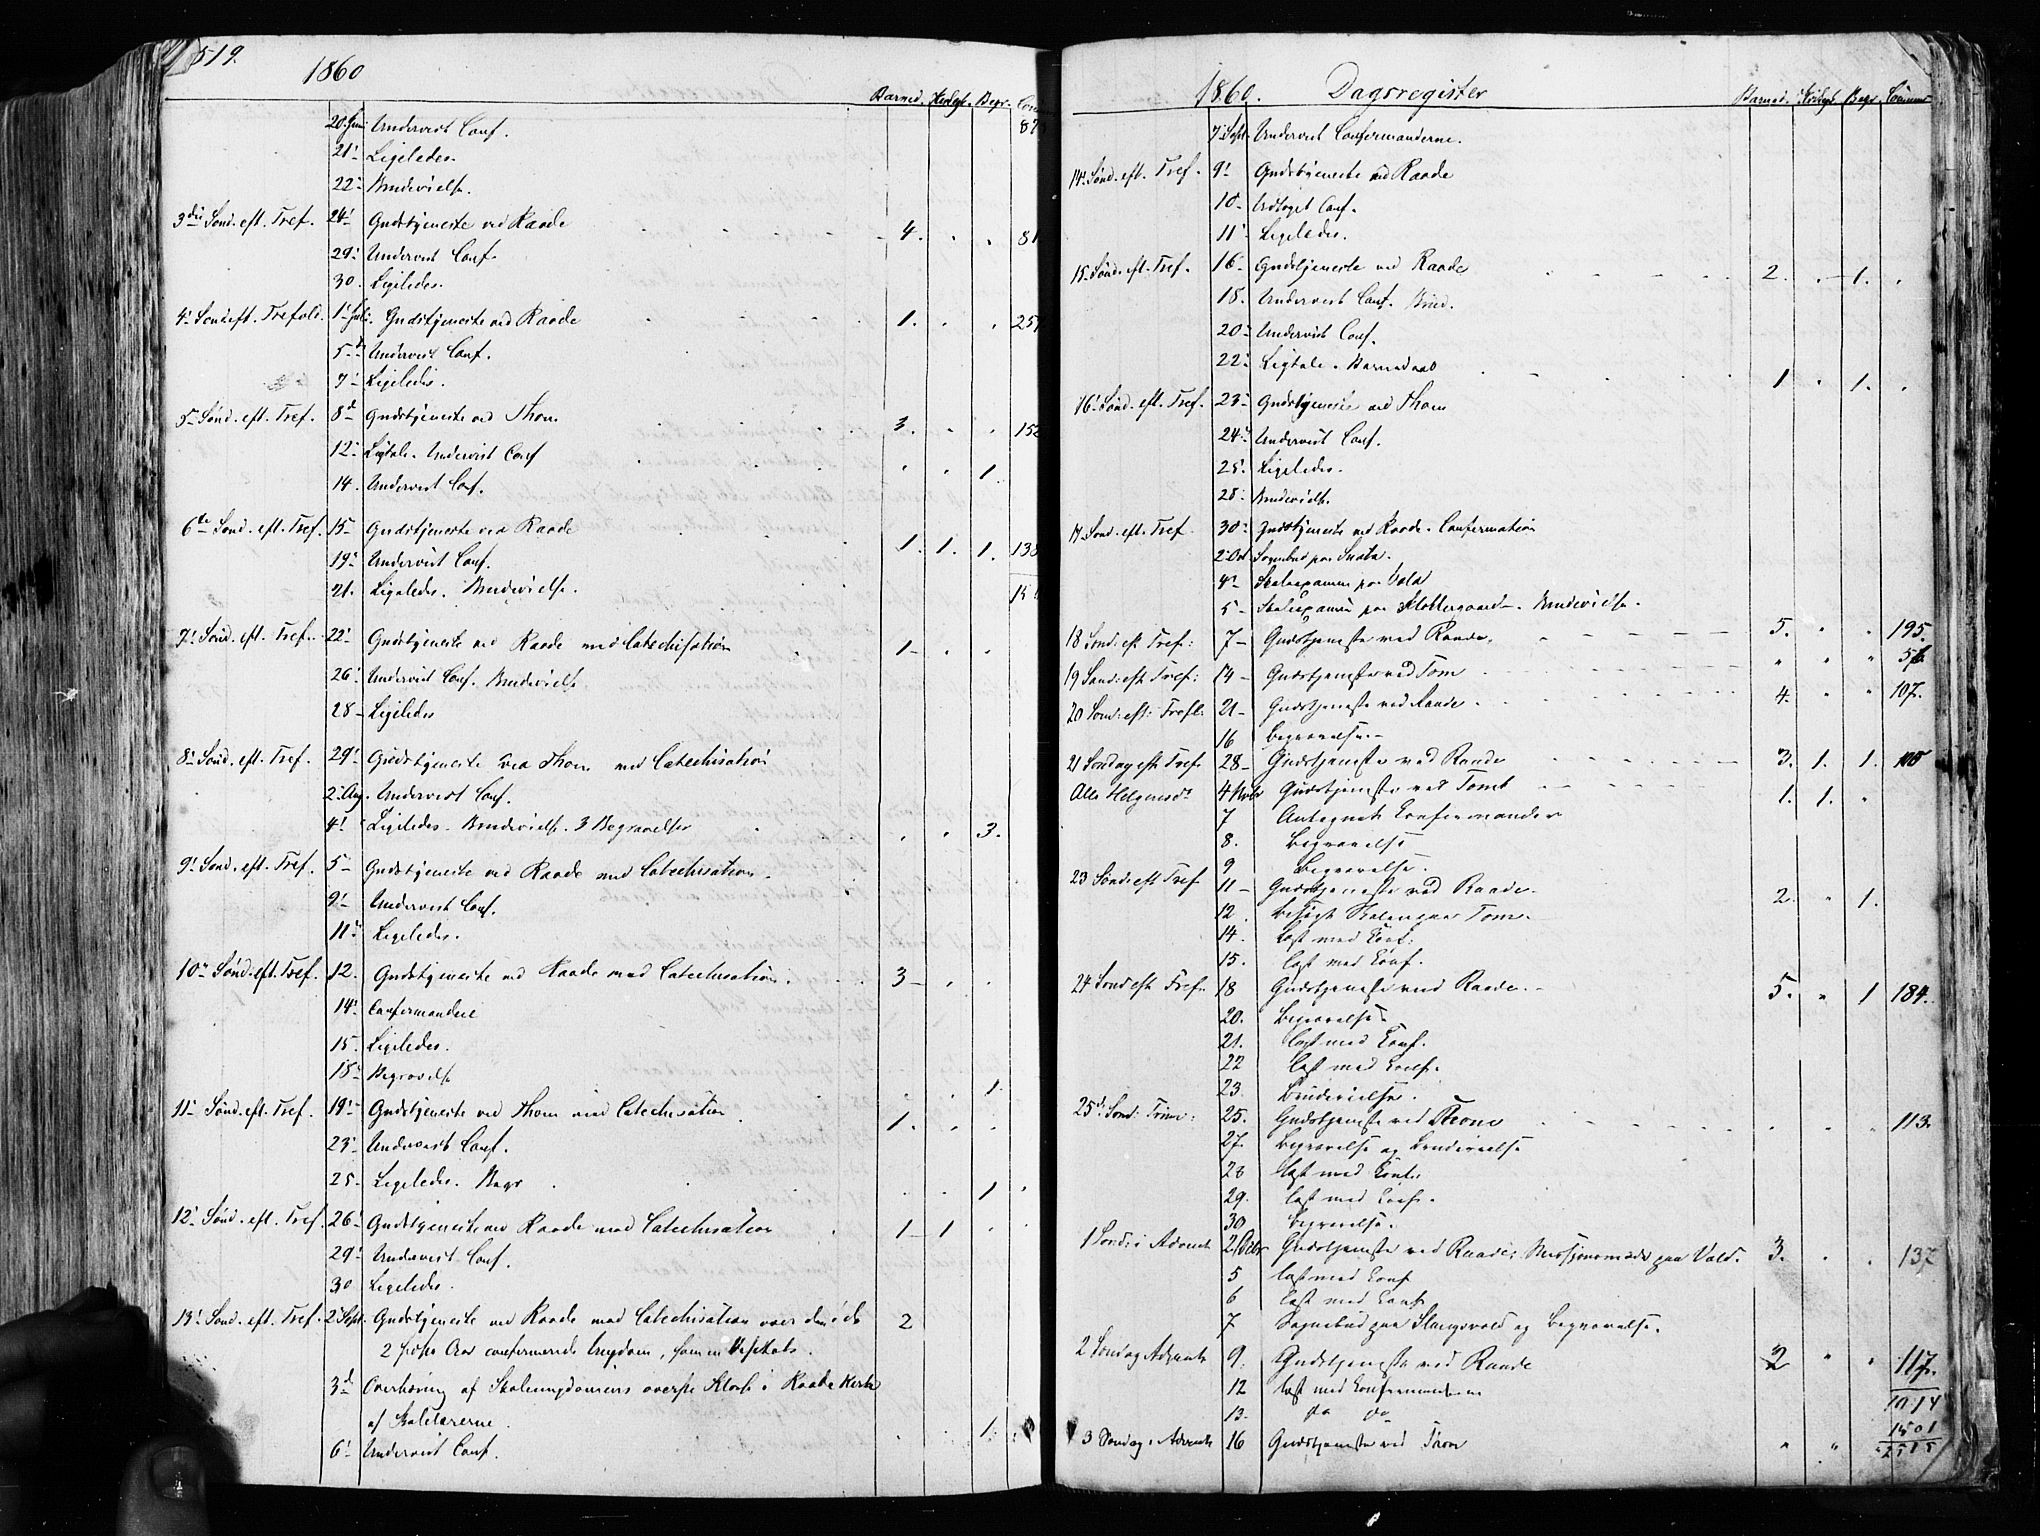 519.
1860
Barned. Introd. Begr. Comm
20 Juni Undervist Conf.
21' Ligeledes.
22' Brudevielse.
3die Sønd. eft. Tref. 24' Gudstjeneste ved Raade 4. 81
29' Undervist Conf.
30. Ligeledes.
4' Sønd. eft. Trefold. 1' Juli. Gudstjeneste ved Raade 1. 251
5' Undervist Conf.
7' Ligeledes.
5' Sønd. eft. Tref. 8d Gudstjeneste ved Thom 3. 152
12' Ligtale. Undervist Conf 1.
14. Undervist Conf.
6te Sønd. eft. Tref. 15 Gudstjeneste ved Raade 1. 1. 1. 138
19' Undervist Conf.
21. Ligeledes. Brudevielse.
7' Sønd. eft. Tref. 22' Gudstjeneste ved Raade med Catechisation 1
26' Undervist Conf. Brudevielse
28 Ligeledes
8' Sønd. eft. Tref. 29' Gudstjeneste ved Thom med Catechisation
2' Aug. Undervist Conf.
4' Ligeledes. Brudevielse. 3 Begravelser 3.
9' Sønd. eft. Tref. 5 Gudstjeneste ved Raade med Catechisation.
9' Undervist Conf.
11' Ligeledes.
10' Sønd. eft. Tref. 12. Gudstjeneste ved Raade med Catechisation. 3
14' Confirmandere
15. Ligeledes.
18' Begravelse 1.
11' Sønd. eft. Tref. 19' Gudstjeneste ved Thom med Catechisation 1.
23' Undervist Conf.
25. Ligeledes. Begr 1
12' Sønd. eft. Tref. 26' Gudstjeneste ved Raade med Catechisation 1 1
29' Undervist Conf.
30 Ligeledes.
13' Sønd. eft. Tref. 2' Sept. Gudstjeneste ved Raade med Catechisation over den i de 2
2 sidste Aar confirmerede Ungdom,
3d Overhøring af Skoleungdommens øverste Klasse i Raade Kirke
af Skolelærerne. 1.
6' Undervist Conf.
1860. Dagsregister
Barned. Introd. Begr. Commun
7' Sept. Undervist Confirmanderne.
14' Sønd. eft. Tref. 9' Gudstjeneste ved Raade
10. Udtaget Conf.
11' Ligeledes.
15 Sønd. eft. Tref. 16. Gudstjeneste ved Raade 2. 1.
18. Undervist Conf. Brud.
20 Undervist Conf.
22' Ligtale. Barnedaab 1 1.
16' Sønd. eft. Tref. 23' Gudstjeneste ved Thom
24' Undervist Conf.
25' Ligeledes.
28' Brudevielse.
17. Sønd. eft. Tref. 30' Gudstjeneste ved Raade. Confirmation
2' Oct Sognebud paa
4' Skoleexamen paa Vold
5 Skoleexamen paa Klostergaard. Brudevielse.
18 Sønd: eft Tref: 7 Gudstjeneste ved Raade. 5. 195.
19 Sønd: eft Tref: 14 Gudstjeneste ved Tom
20 Sønd: eft: Trefl: 21 Gudstjeneste ved Raade. 4. 107.
16 Begravelse.
21 Søndag eft Tref. 28 Gudstjeneste ved Raade 3. 1. 1.
Alle Helgensd. 4 Nvbr Gudstjeneste ved Tomb 1. 1.
7 Antegnet Confirmander
8. Begravelse
9 Begravelse.
23 Sønd: eft Tref 11 Gudstjeneste ved Raade. 2. 1.
12. Besøgt Skolen paa Tom.
14. Læst med Conf.
15. Læst med Conf.
24 Sønd eft Tref 18 Gudstjeneste ved Raade. 5. 1 184.
20. Begravelse.
21. Læst med Conf.
22 Læst med Conf.
23. Brudevielse.
25d Sønd: Trin: 25. Gudstjeneste ved 113.
27. Begravelse og Brudevielse
28 Læst med Conf:
29. Læst med Conf.
30 Begravelse.
1 Sønd: i Advent 2 Dcbr Gudstjeneste ved Raade; Missionsmøde paa Vold. 3. 137
5 Læst med Conf
6 Læst med Conf
7 Sognebud paa Slangsvold og Begravelse.
2 Søndag Advent 9. Gudstjeneste ved Raade 2 117.
12 Læst med Confirmanderne
13. do do
1014
1501
3 Søndag i Advent 16 Gudstjeneste ved Tom 2515